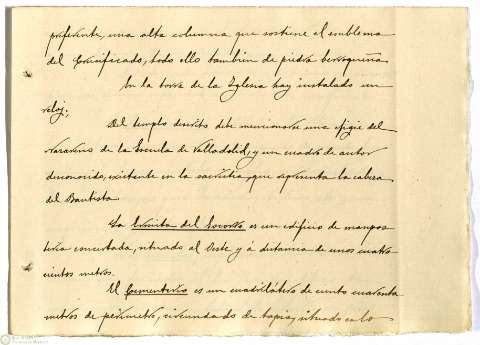 preferente, una alta columna que sostiene el emblema
del Crucificado, todo ello tambien de piedra berroqueña
En la torre de la Iglesia hay instalado un
reloj;
Del templo descrito debe mencionarse una efigie del
Nazareno de la Escuela de Valladolid, y un cuadro de autor
desconocido, existente en la sacristia, que representa la cabeza
del Bautista
La Ermita del Socorro es un edificio de mampos-
teria concertada, situado al Oeste y á distancia de unos cuatro-
cientos metros.
El Cementerio es un cuadrilátero de ciento cuarenta
metros de perimetro, circundado de tapia, situado a lo